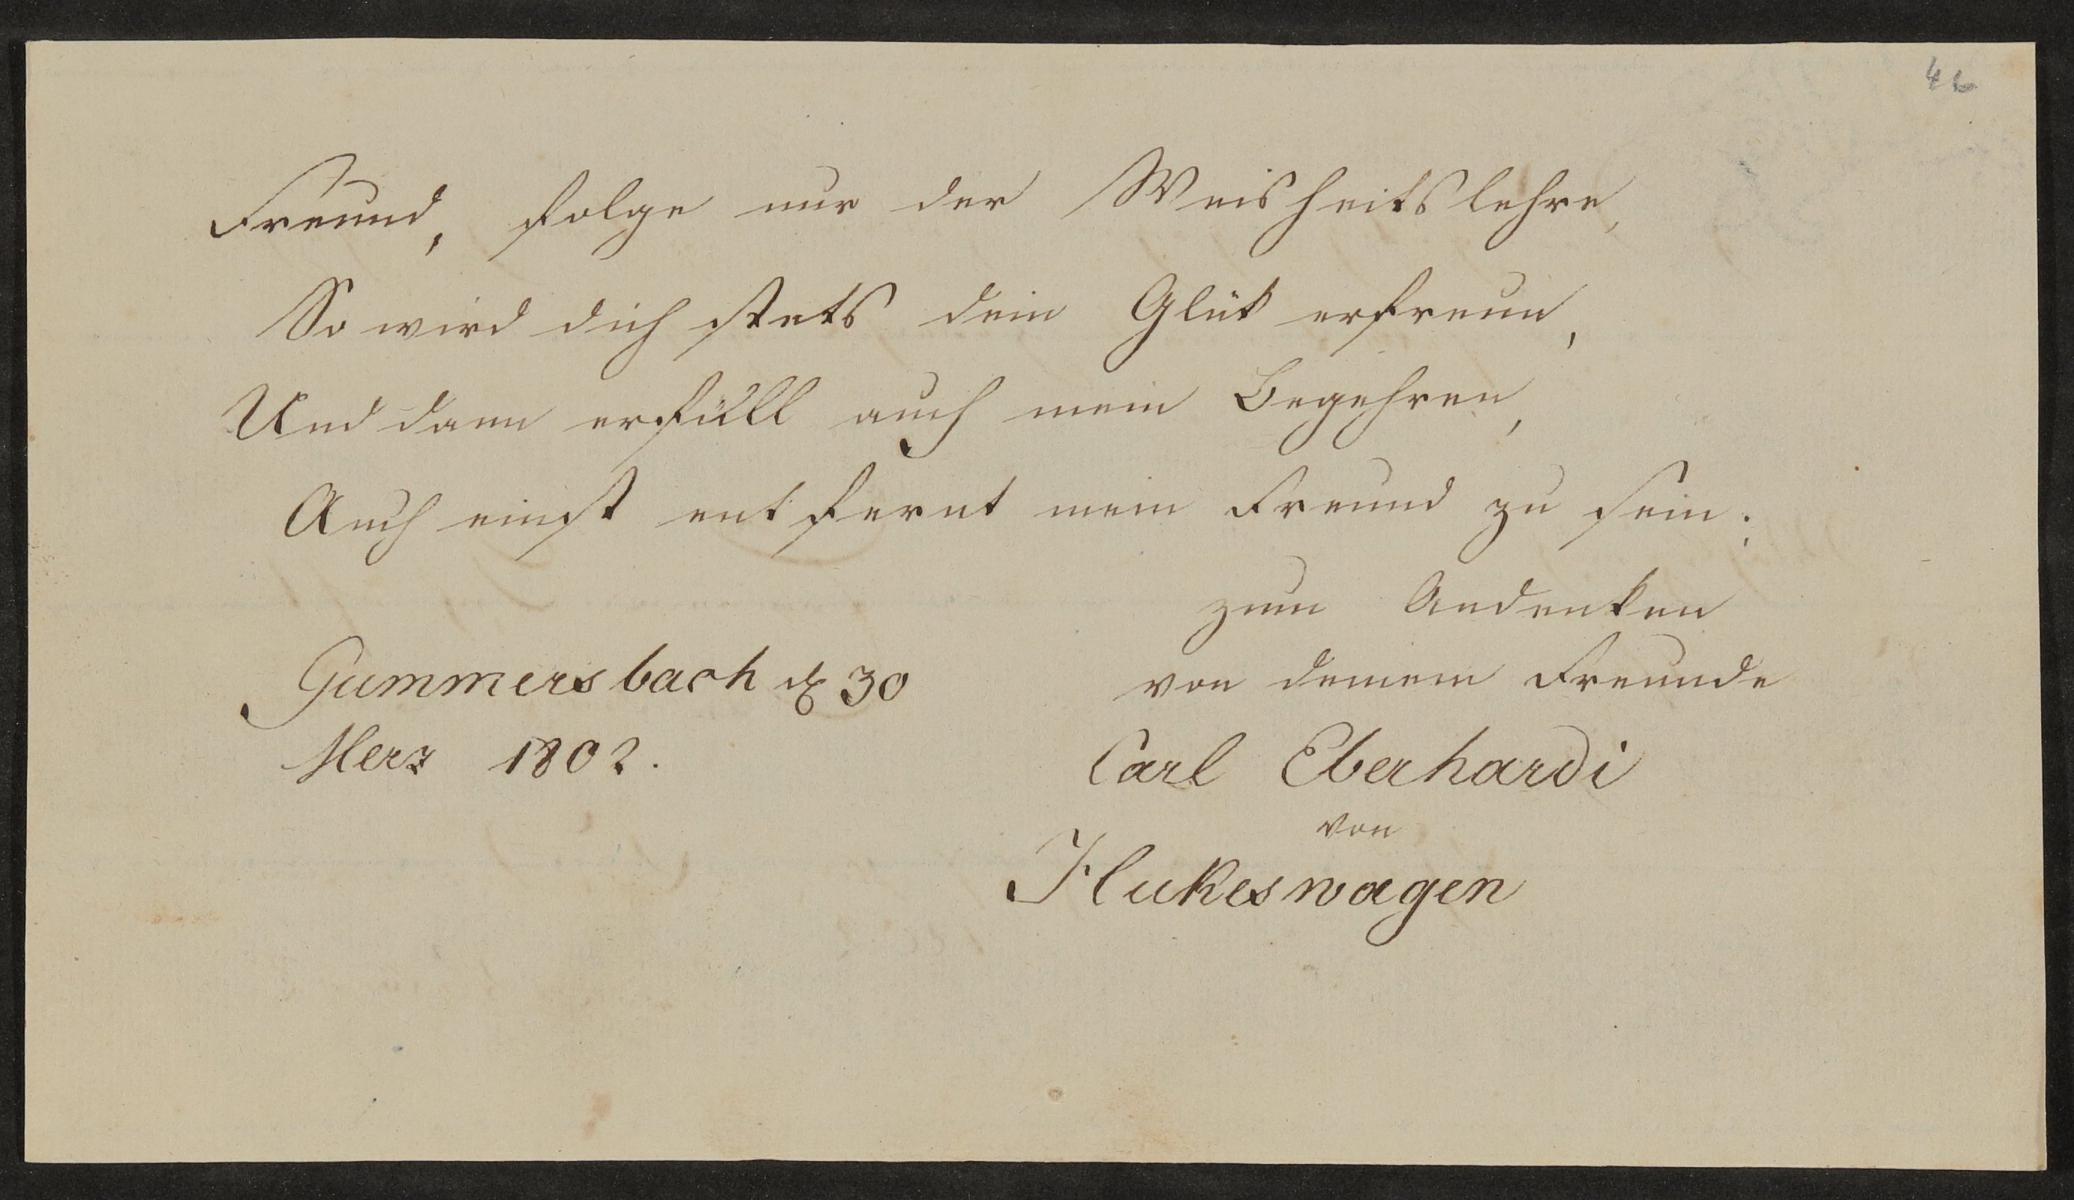 46
Freund, folge nur der Weisheitslehre,
So wird dich stets dein Glük erfreun,
Und dann erfüll auch mein Begehren,
Auch einst entfernt mein Freund zu sein.
zum Andenken
von deinem Freunde
Gummersbach d 30
Merz 1802.
Carl Eberhardi
von
Hukeswagen